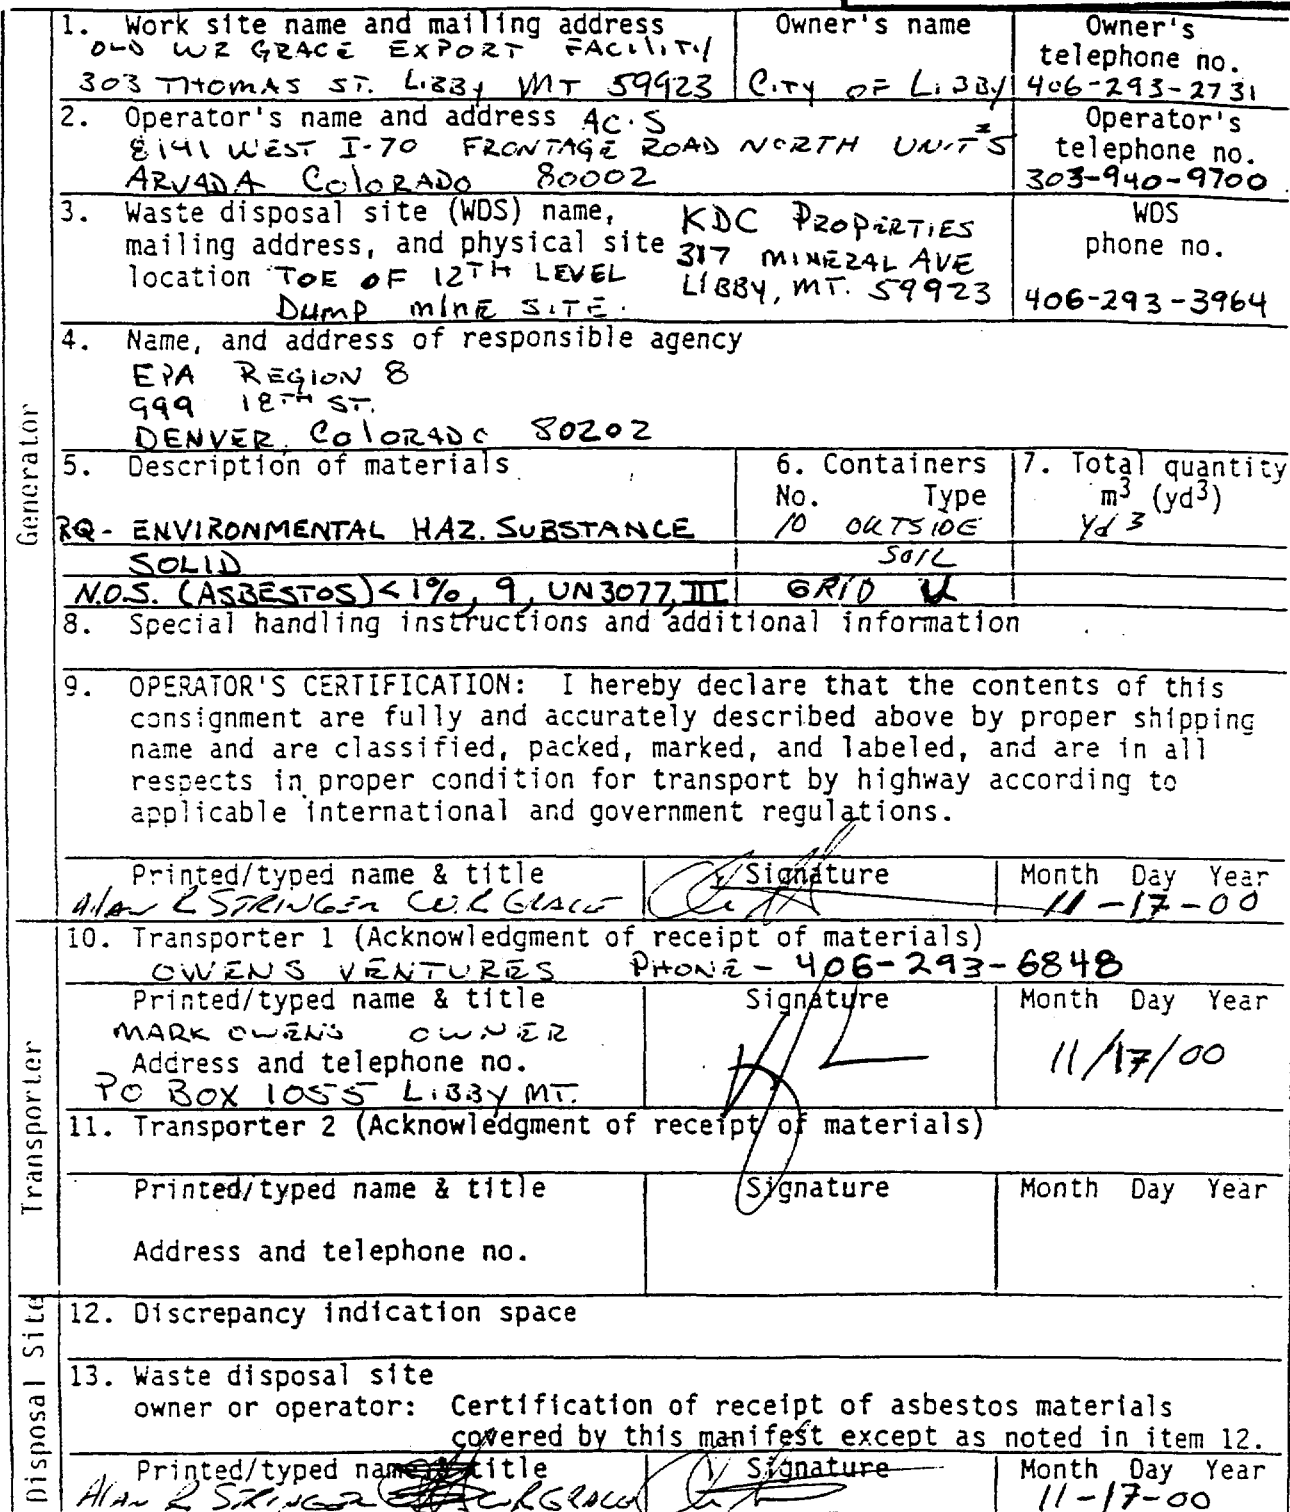 1. Work site name and mailing address
OLD WR GRACE EXPORT FACILITY
303 THOMAS ST. LIBBY MT 59923
Owner's name
CITY OF LIBBY
Owner's
telephone no.
406-293-2731
2. Operator's name and address AC·S
8141 WEST I-70 FRONTAGE ROAD NORTH UNIT 5
ARVADA COLORADO 80002
Operator's
telephone no.
303-940-9700
3. Waste disposal site (WDS) name,
mailing address, and physical site
location TOE OF 12TH LEVEL
DUMP MINE SITE.
KDC PROPERTIES
317 MINERAL AVE
LIBBY, MT. 59923
WDS
phone no.
406-293-3964
4. Name, and address of responsible agency
EPA REGION 8
999 18TH ST.
DENVER, COLORADO 80202
Generator
5. Description of materials
6. Containers
No. Type
7. Total quantity
m3 (yd3)
RQ- ENVIRONMENTAL HAZ. SUBSTANCE
10 OUTSIDE
Yd3
SOLID
SOIL
N.O.S. (ASBESTOS)<1%, 9, UN3077, III
GRID U
8. Special handling instructions and additional information
9. OPERATOR'S CERTIFICATION: I hereby declare that the contents of this
consignment are fully and accurately described above by proper shipping
name and are classified, packed, marked, and labeled, and are in all
respects in proper condition for transport by highway according to
applicable international and government regulations.
Printed/typed name & title
Signature
Month Day Year
Alan R STRINGER W.R GRACE
11-17-00
10. Transporter 1 (Acknowledgment of receipt of materials)
OWENS VENTURES PHONE - 406-293-6848
Printed/typed name & title
Signature
Month Day Year
MARK OWENS OWNER
Address and telephone no.
11/17/00
PO BOX 1055 LIBBY MT.
Transporter
11. Transporter 2 (Acknowledgment of receipt of materials)
Printed/typed name & title
Signature
Month Day Year
Address and telephone no.
Disposal Site
12. Discrepancy indication space
13. Waste disposal site
owner or operator: Certification of receipt of asbestos materials
covered by this manifest except as noted in item 12.
Printed/typed name & title
Signature
Month Day Year
Alan R STRINGER W R GRACE
11-17-00